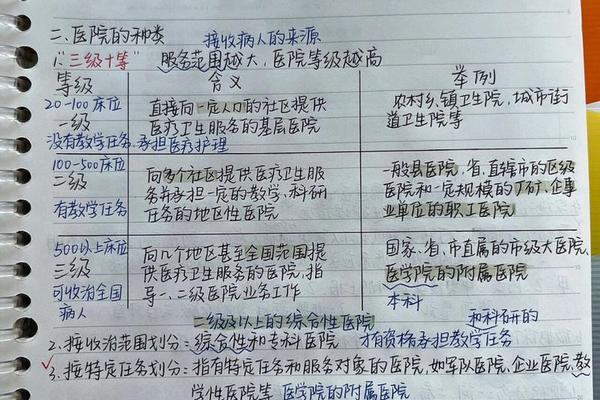 二、医院的种类 接收病人的来源
1."三级十等" 服务范围越大,医院等级越高
等级 含义 举例
20-100床位 直接向一定人口的社区提供 农村乡、镇卫生院,城市街
一级 医疗卫生服务的基层医院 道卫生院等
没有教学任务,承担医疗护理
100-500床位 向多个社区提供医疗卫生服 一般县医院,省、直辖市的区级
二级 务并承担一定的教学、科研 医院和一定规模的厂矿、企事
有教学任务 任务的地区性医院 业单位的职工医院
500以上床位 向几个地区甚至全国范围提 国家、省、市直属的市级大医院,
三级 供医疗卫生服务的医院,指 医学院的附属医院
可收治全国 导一、二级医院业务工作 本科
病人
二级及以上的综合性医院 和科研的
2.按收治范围划分:综合性和专科医院 才有资格承担教学任务
3.按特定任务划分:指有特定任务和服务对象的医院,如军队医院、企业医院、教
学性医院等 医学院的附属医院